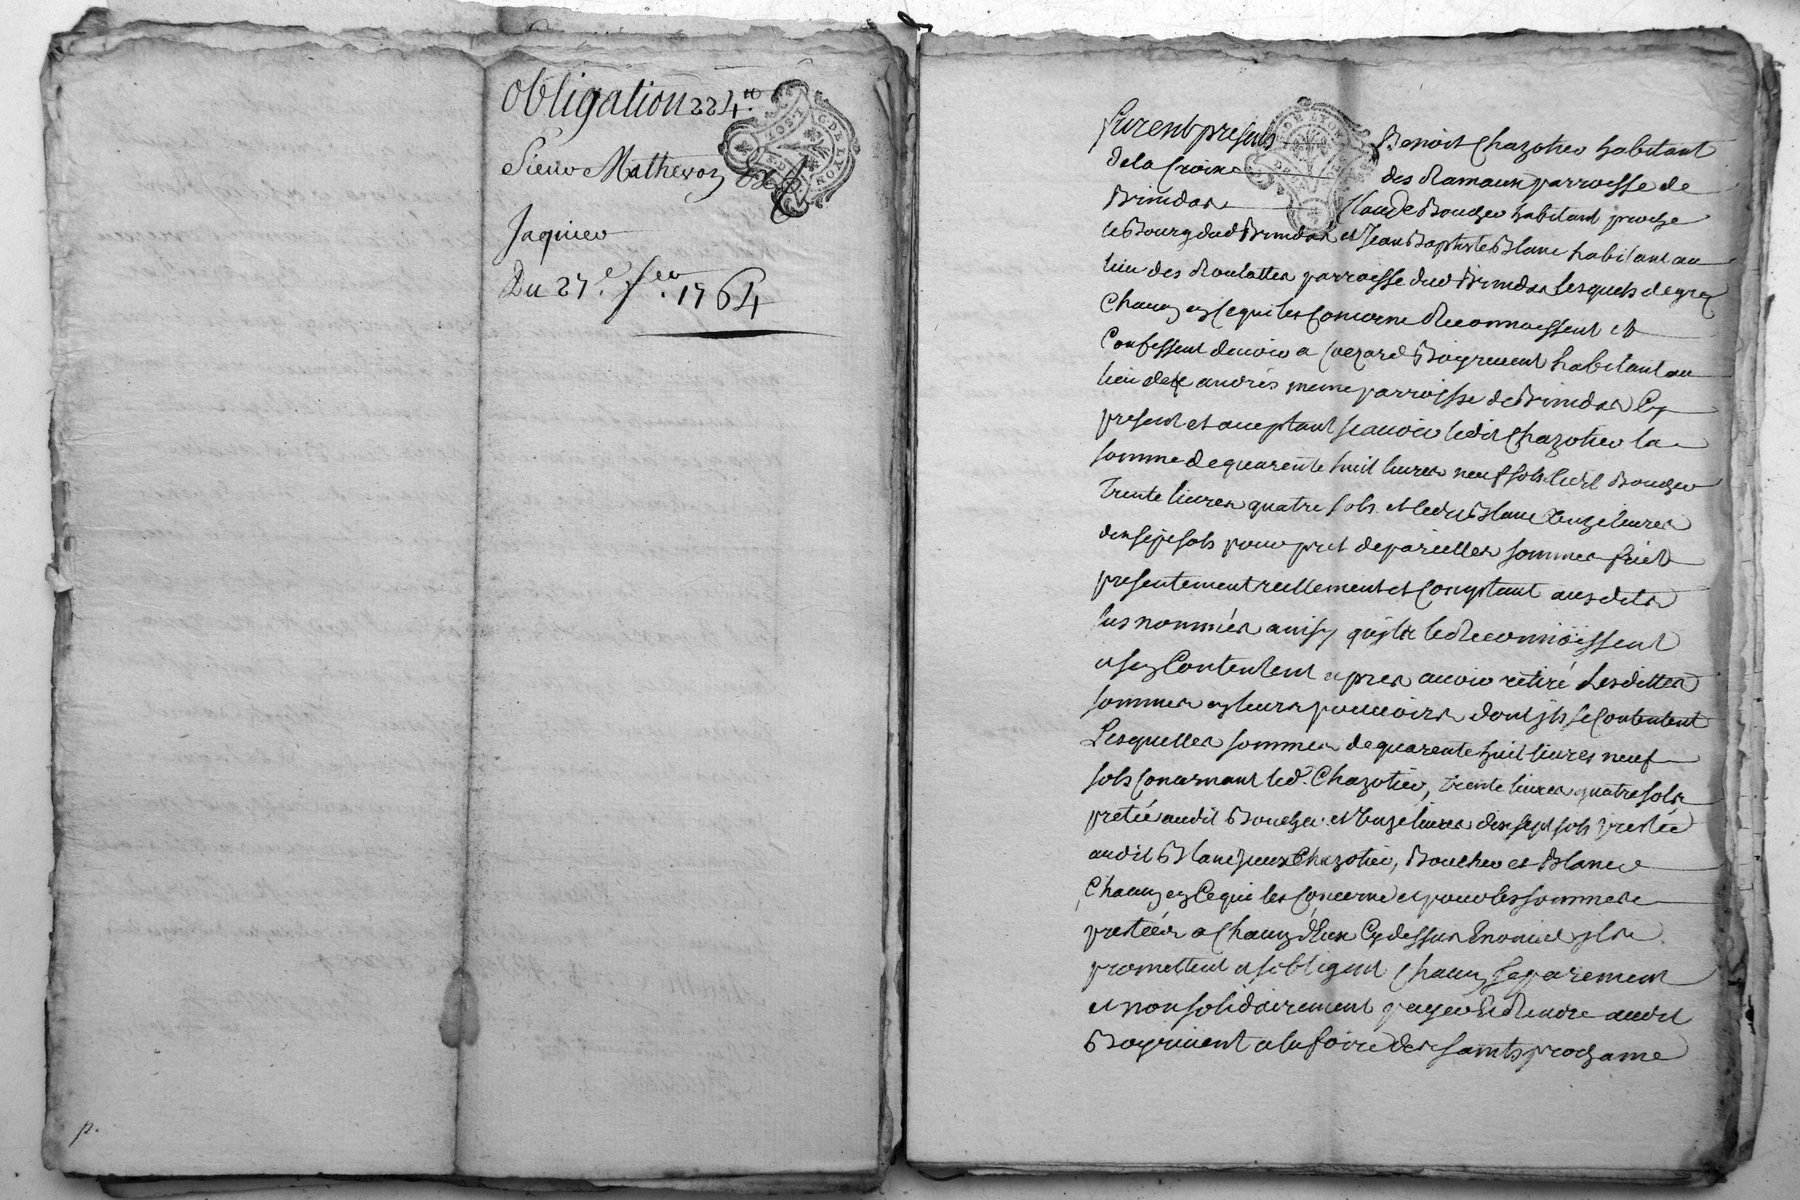 obligation 224.lt
Sieur Mathevon
Jaquier
Du 27.e fer. 1764
p.
furent presents Benoit Chazotier habitant
de la Croix des Ramaux parroisse de
Brindas Claude Boucher habitant proche
le Bourg dud Brindas et Jean Baptiste Blanc habitant au
lieu des Roulattes parroisse dud Brindas lesquels de gré
Chacun en ce qui les Concerne Reconnoissent et
Confessent devoir a habitant au
lieu de andrés meme parroisse de Brindas Cy
present et aceptant scauoir ledit Chazotier la
somme de quarente huit liures neuf sols ledit Boucher
Trente liures quatre sols et ledit Blanc Onze liures
dix sept sols pour pret de pareilles sommes fait
presentement reellement et Comptant ausdits
sus nommés ainsy qu'ils le Reconnoissent
et sen Contentent apres auoir retiré Lesdittes
sommes en leurs pouuoirs dont ils se Contentent
Lesquelles sommes de quarente huit liures neuf
sols Concernant led. Chazotier, trente liures quatre sols
pretée audit Boucher et Onze liures dix sept sols prestée
audit Blanc Chazotier, Boucher et Blanc
Chacun en Ce qui les Concerne et pour les sommes
prestées a Chacun d'Eux Cy dessus Enoncé ils
promettent et sobligent Chacun separement
et non solidairement payer Et Rendre audit
a la foire des saints prochaine